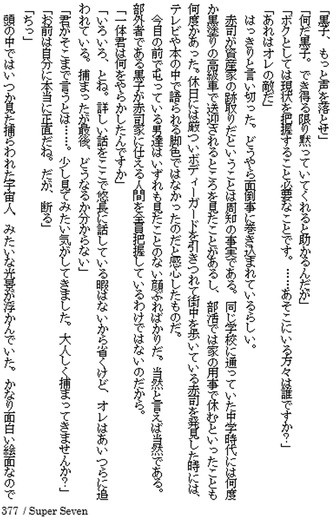 「黒子、もっと声を落とせ」
「何だ黒子。できる限り黙っていてくれると助かるんだが」
「ボクとしては現状を把握すること必要なことです。……あそこにいる方々は誰ですか？」
「あれはオレの敵だ」
　はっきりと言い切った。どうやら面倒事に巻き込まれているらしい。
　赤司が資産家の跡取りだということは周知の事実である。同じ学校に通っていた中学時代には何度
か黒塗りの高級車で送迎されるところを見たことがあるし、部活では家の用事で休むといったことも
何度かあった。休日には厳ついボディーガードを引きつれて街中を歩いている赤司を発見した時には、
テレビや本の中で語られる脚色ではなかったのだと感心したものだ。
　今目の前で屯っている男達はいずれも見たことのない顔ぶればかりだ。当然と言えば当然である。
部外者である黒子が赤司家に仕える人間を全員把握しているわけではないのだから。
「一体君は何をやらかしたんですか」
「いろいろ、とね。詳しい話をここで悠長に話している暇はないから省くけど、オレはあいつらに追
われている。捕まったが最後、どうなるか分からない」
「君がそこまで言うとは……。少し見てみたい気がしてきました。大人しく捕まってきませんか？」
「お前は自分に本当に正直だね。だが、断る」
「ちっ」
　頭の中ではいつか見た捕らわれた宇宙人、みたいな光景が浮かんでいた。かなり面白い絵面なので
377 / Super Seven